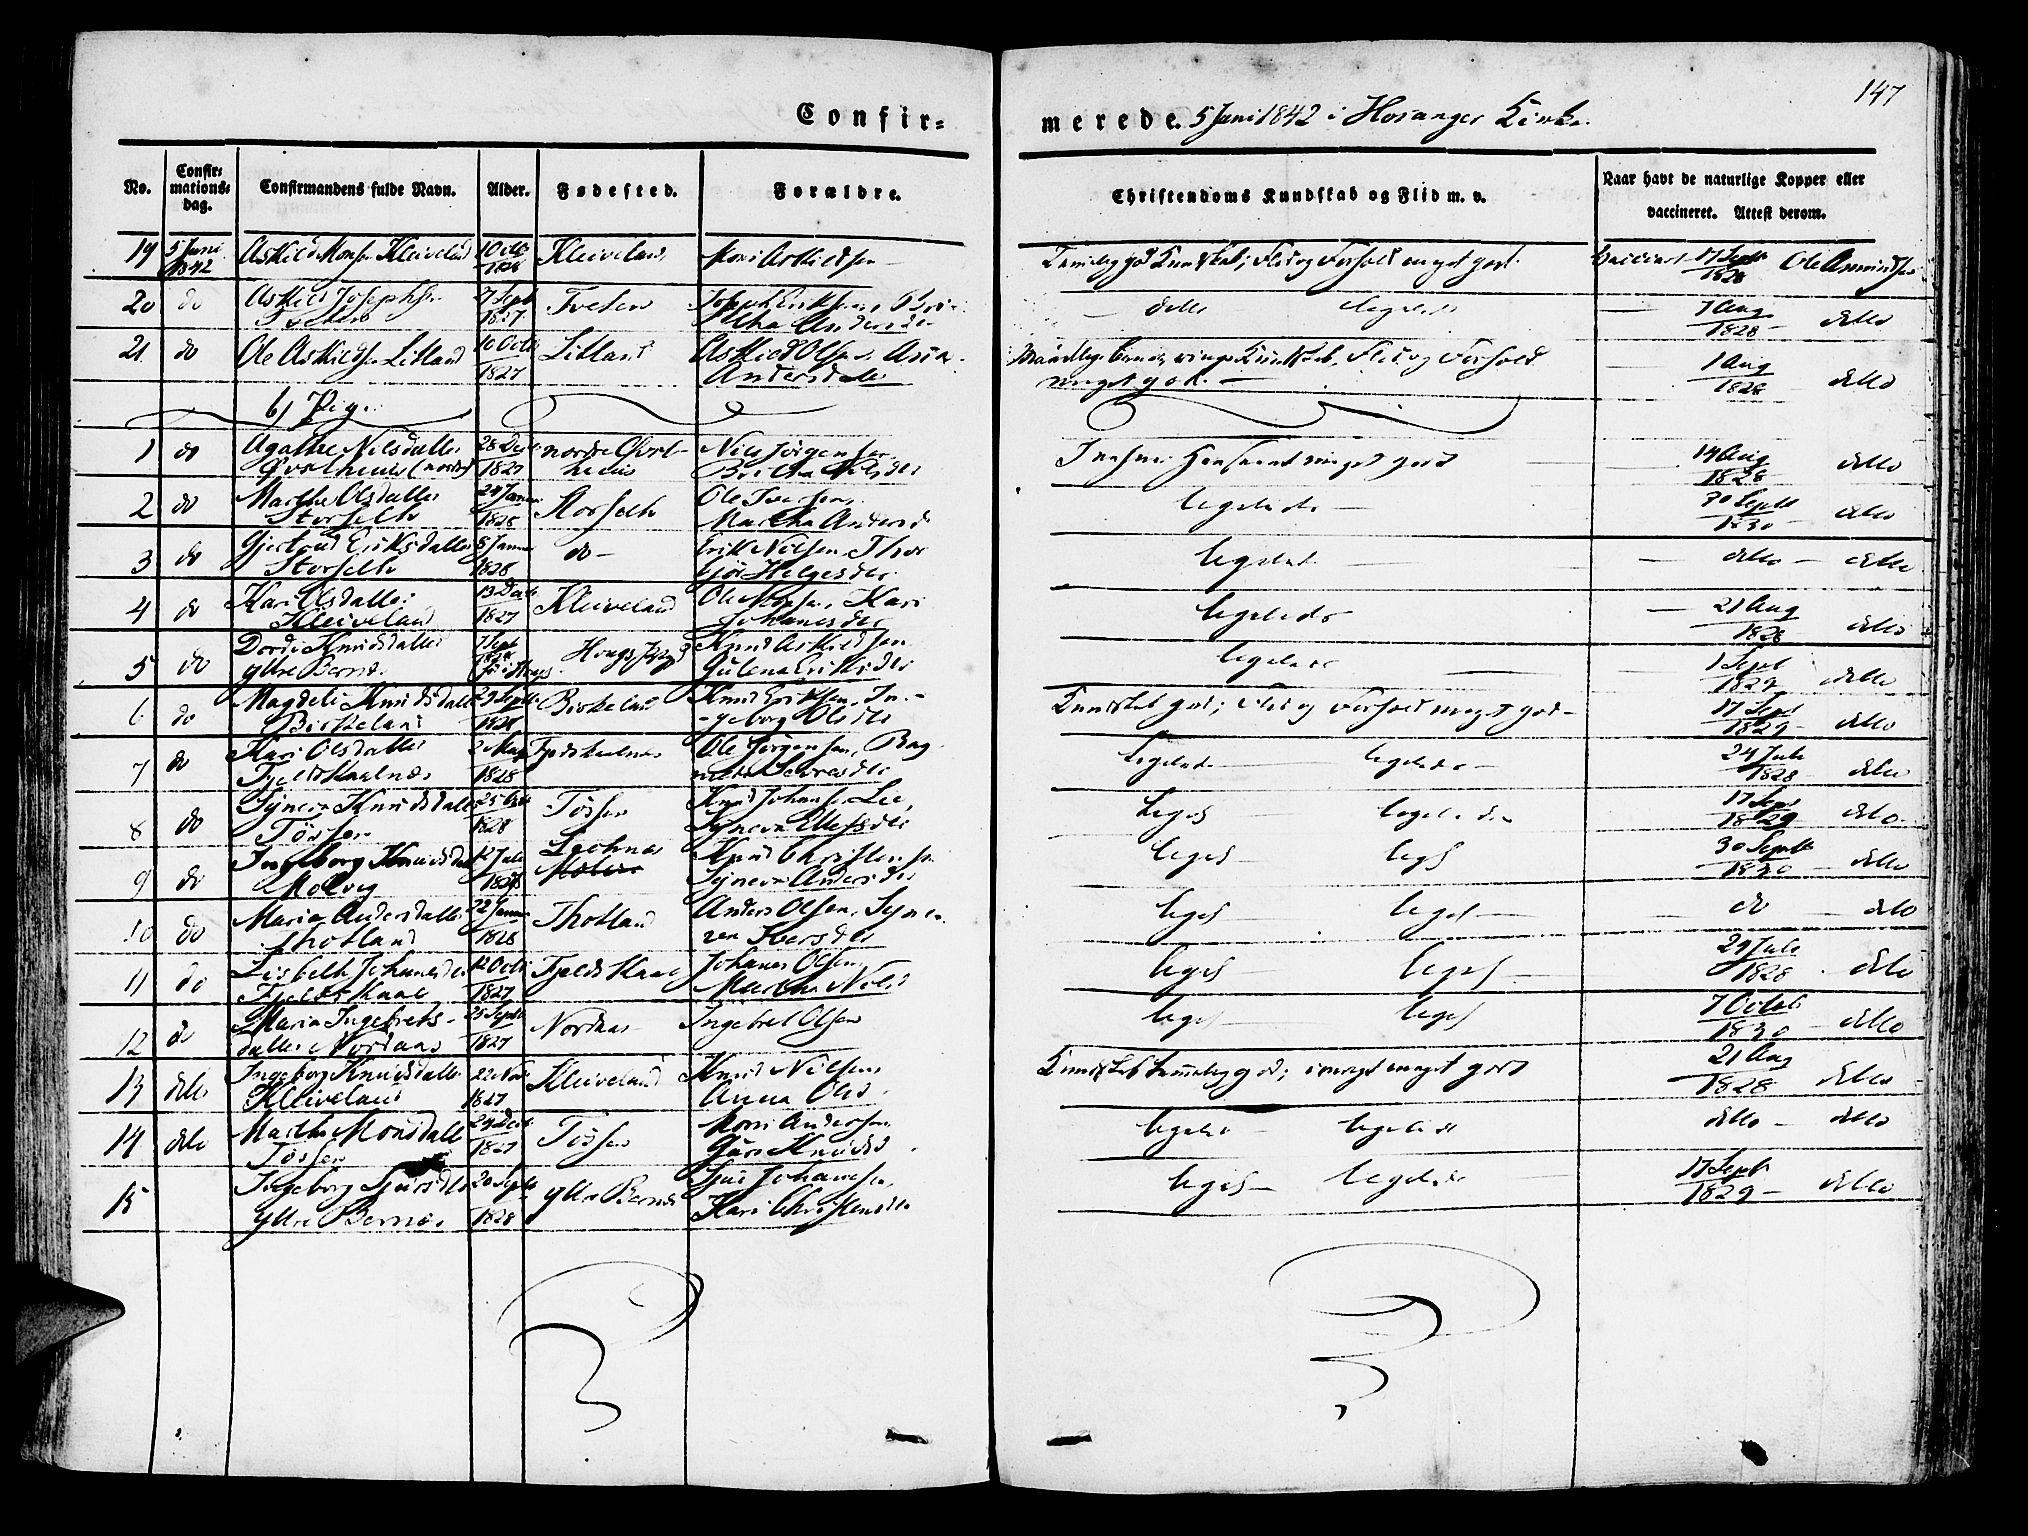 147
Confir= merede. 5 Juni 1842 i Hosanger Kirke.
No. Confir=mations=dag. Confirmandens fulde Navn. Alder. Fødested. Forældre. Christendoms Kundskab og Flid m. v. Naar havt de naturlige Kopper eller vaccineret. Attest derom.
19 5 Juni 1842 Askild Monsen Kleiveland 10 Octb 1828 Kleiveland Mons Askildsen Temmelig god Kundskab; Flid og Forhold meget godt. vaccineret 17 Septb 1828 Ole Amundsen
20 do Askild Josephsen Tveten 7 Sept 1827 Tveten Joseph Eriksen, Britha Andersdr detto ligeledes 1 Aug 1828 detto
21 do Ole Askildsen Litland 10 Octb 1827 Litland Askild Olsen, Anna Andersdatter Kundskab, Flid og Forhold meget godt. 1 Aug 1828 detto
b) Piger
1 do Agathe Nilsdatter Qvalheim (nordre) 28 Decb 1827 nordre Qvalheim Nils Jörgensen Britha Nilsdr I enhver Henseende meget godt 14 Aug 1828 detto
2 do Marthe Olsdatter Storseth 24 Januar 1828 Storseth Ole Iversen, Martha Andersd ligeledes 30 Septb 1830 detto
3 do Gjertrud Eriksdatter Storseth 8 Januar 1828 do Erik Nilsen, Thorbjör Helgesdr ligeledes detto detto
4 do Kari Olsdatter Kleiveland 13 Decb 1827 Kleiveland Ole Monsen, Kari Johanesdr ligeledes 21 Aug 1828 detto
5 do Dordi Knudsdatter Yttre Bernes 7 Sept Knud Askildsen Gülena Eriksdr ligeledes 1 Sept 1829 detto
6 do Magdeli Knudsdatter Birkeland 29 Septb Birkeland Knud Eriksen, Ingeborg Olsdr Kundskab god; Flid og Forhold meget god 17 Sept 1829 detto
7 do Kari Olsdatter Fjeldskaalnes 2 May 1828 Fjeldskaalnes Ole Jörgensen, Ragnilda Iversdr ligeledes ligeledes 24 Juli 1828 detto
8 do Synneva Knudsdatter Tössen 25 1828 Tössen Knud Johansen Lee, Synneva Ellefsdr liges ligeledes 17 Sept 1829 detto
9 do Ingeborg Knudsdatter Molvig 12 Juli 1828 Knud Christensen Synneva Andersdr liges liges 30 Septb 1830 detto
10 do Maria Andersdatter Thotland 22 Januar 1828 Thotland Anders Olsen, Synneva Iversdr liges liges do detto
11 do Lisbeth Johanesdr Fjeldskaal 12 Octb 1827 Fjeldskaal Johanes Olsen, Martha Nilsd liges liges 29 Juli 1828 detto
12 do Maria Ingebrets-datter Nordaas 25 Septb 1827 Nordaas Ingebret Olsen liges liges 7 Octob 1830 detto
13 detto Ingeborg Knudsdatter Kleiveland 22 Nov 1827 Kleiveland Knud Nilsen Anna Olsd Kundskab temmelig god; meget godt 21 Aug 1828 detto
14 detto Marthe Monsdatter Tössen 24 Decb 1827 Tössen Mons Andersen Guri Knudsd ligeledes ligeledes detto detto
15 Ingeborg Sjursdtr Yttre Bernes 20 Septb 1828 Yttre Bernes Sjur Johanesen, Kari Christensdr liges ligeledes 17 Septb 1829 detto